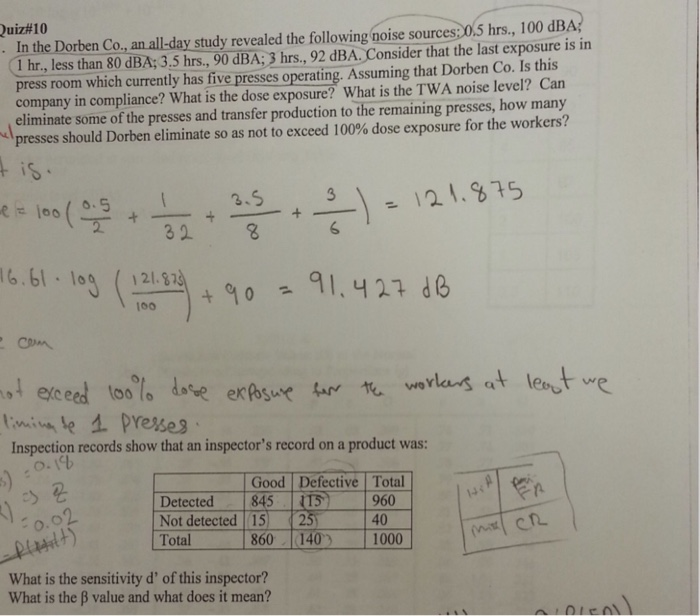 Quiz#10
. In the Dorben Co., an all-day study revealed the following noise sources: 0.5 hrs., 100 dBA;
1 hr., less than 80 dBA; 3.5 hrs., 90 dBA; 3 hrs., 92 dBA. Consider that the last exposure is in
press room which currently has five presses operating. Assuming that Dorben Co. Is this
company in compliance? What is the dose exposure? What is the TWA noise level? Can
eliminate some of the presses and transfer production to the remaining presses, how many
presses should Dorben eliminate so as not to exceed 100% dose exposure for the workers?
is.
= 100 ( 0.5/2 + 1/32 + 3.5/8 + 3/6 ) = 121.875
16.61 · log ( 121.875/100 ) + 90 = 91.427 dB
can
not exceed 100% dose exposure for the workers at least we
liminate 1 presses.
Inspection records show that an inspector's record on a product was:
= 0.18
=> z
= 0.02
Good Defective Total
Detected 845 115 960
Not detected 15 25 40
Total 860 140 1000
CR
What is the sensitivity d' of this inspector?
What is the β value and what does it mean?